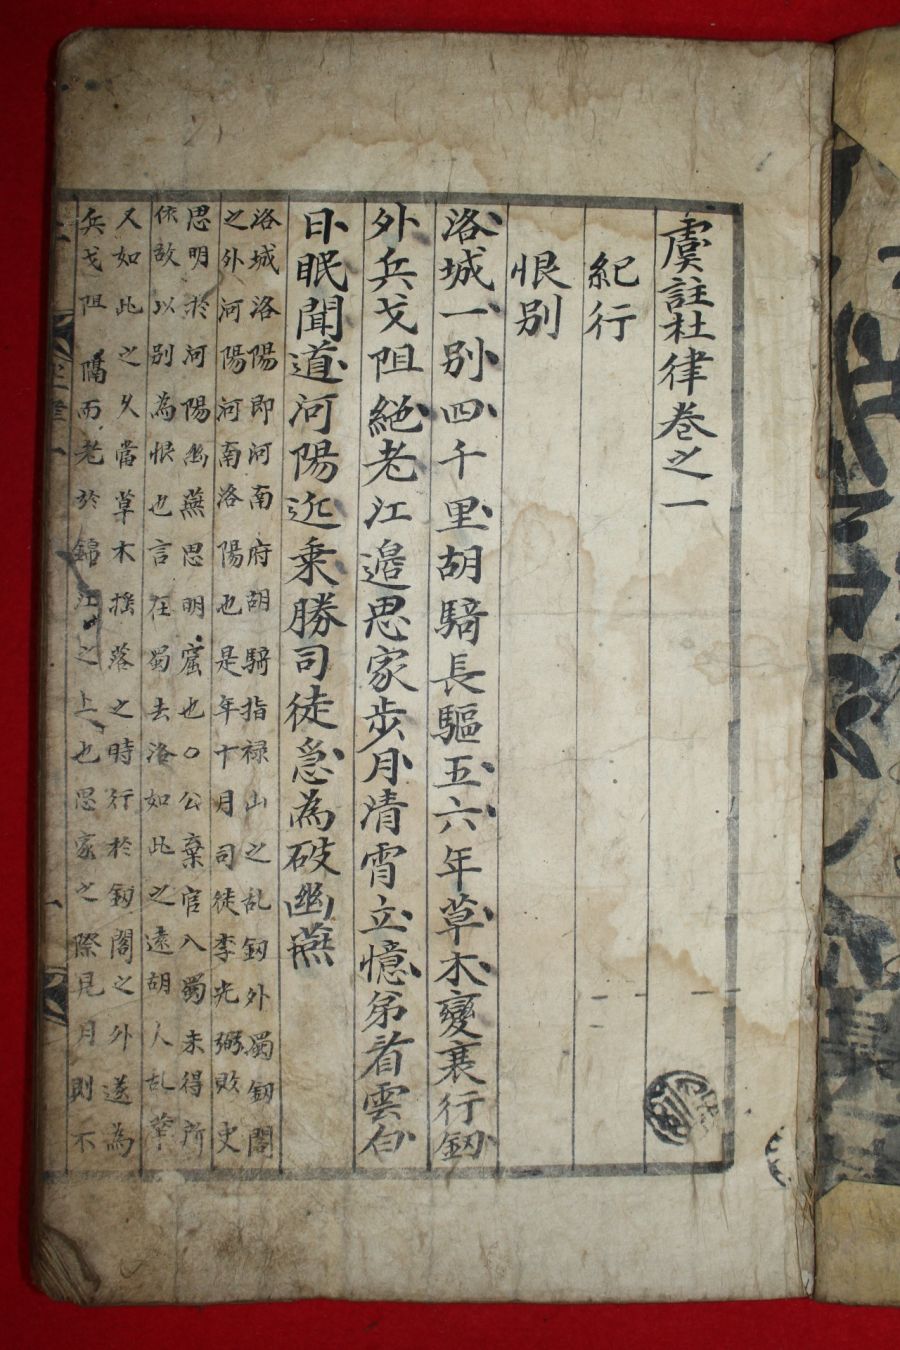 虞註杜律卷之一
紀行
恨別
洛城一別四千里胡騎長驅五六年草木變衰行釰
外兵戈阻絕老江邉思家步月清宵立憶弟看雲白
日眠聞道河陽近乗勝司徒急為破幽燕
洛城洛陽即河南府胡騎指禄山之乱釰外蜀釰閣
之外河陽河南洛陽也是年十月司徒李光弼敗史
思明於河陽幽燕思明窟也○公棄官入蜀未得所
依故以別為恨也言在蜀去洛如此之遠胡人乱華
又如此之久當草木揺落之時行於釰閣之外遂為
兵戈阻隔而老於錦江之上也思家之際見月則不